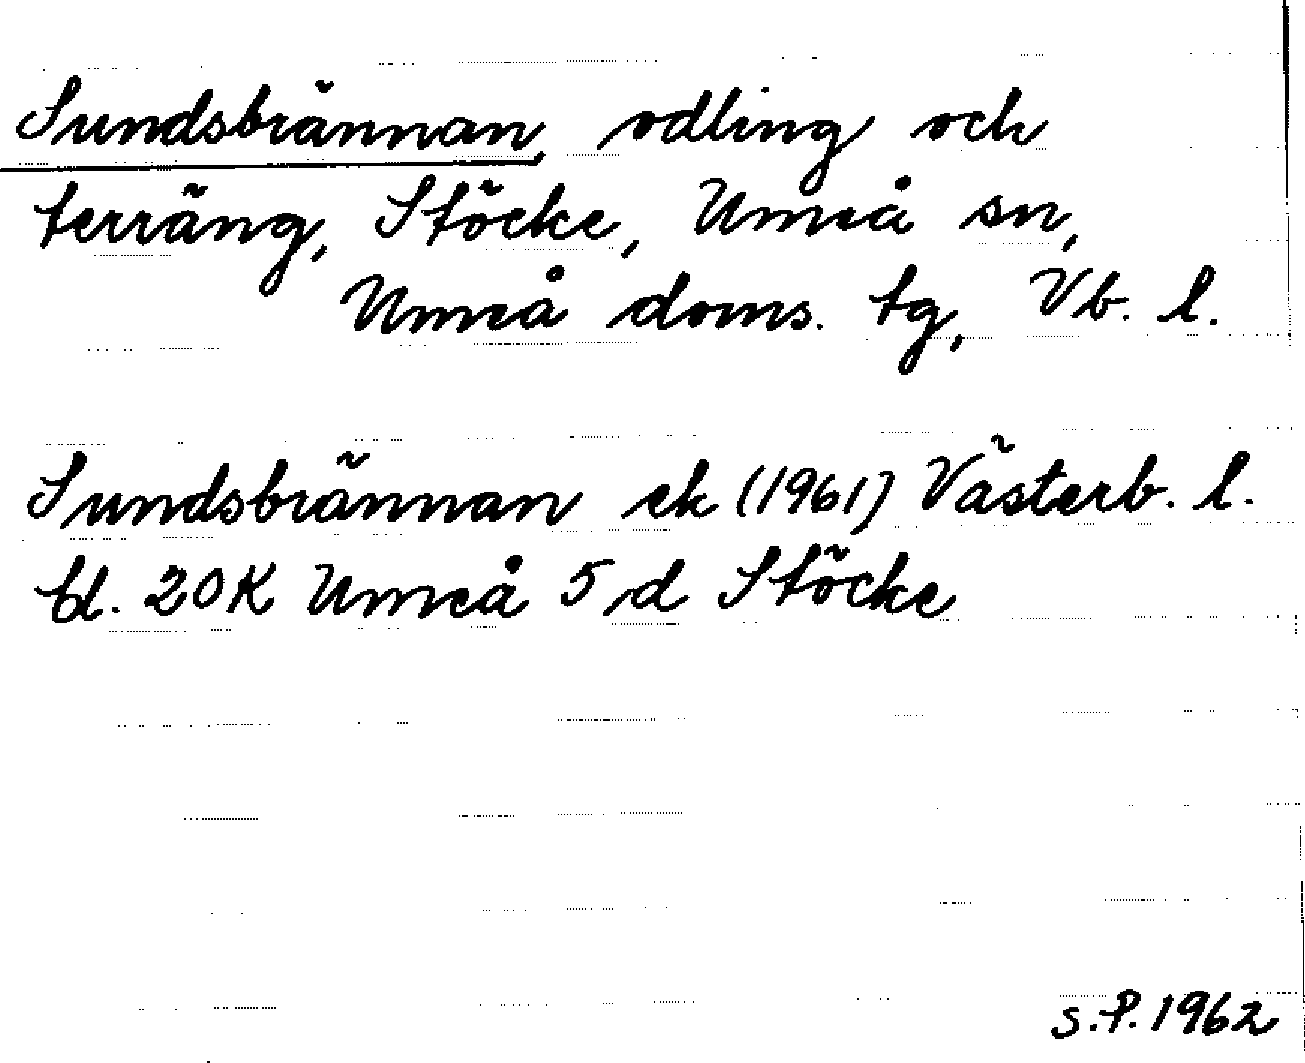 Sundsbrännan, odling och
terräng, Stöcke, Umeå sn,
Umeå doms. tg, Vb. l.
Sundsbrännan ek (1961) Västerb. l.
bl. 20K Umeå 5 d Stöcke
S.P. 1962